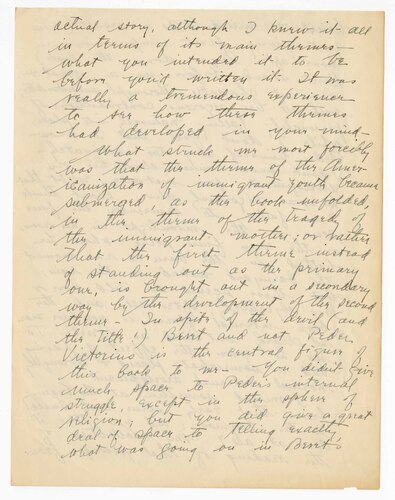 actual story, although I knew it all
in terms of its main themes—
what you intended it to be
before you'd written it. It was
really a tremendous experience
to see how these themes
had developed in your mind—
What struck me most forcibly
was that the theme of the Amer-
icanization of immigrant youth became
submerged, as the book unfolded,
in the theme of the tragedy of
the immigrant mother; or rather
that the first theme instead
of standing out as the primary
one, is brought out in a secondary
way by the development of the second
theme. In spite of the devil (and
the Title!) Beret and not Peder
Victorius is the central figure of
this book to me— You didn't give
much space to Peder's internal
struggle, except in the sphere of
religion; but you did give a great
deal of space to telling exactly
what was going on in Beret's